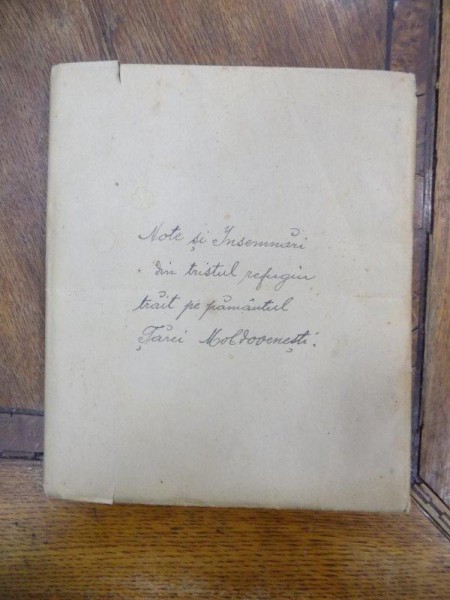 Note și Însemnări
din tristul refugiu
trăit pe pământul
Țărei Moldovenești.